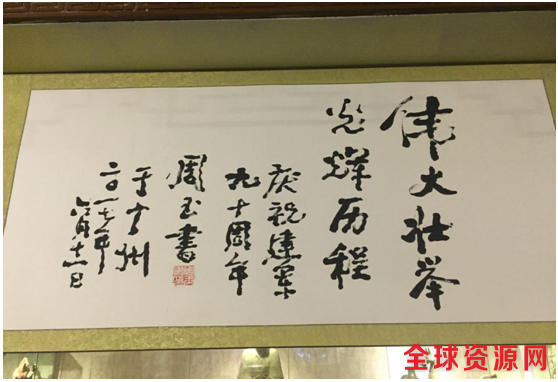 伟大壮举
光辉历程
庆祝建军
九十周年
周玉书
于广州
二〇一七年
六月十六日
全球资源网